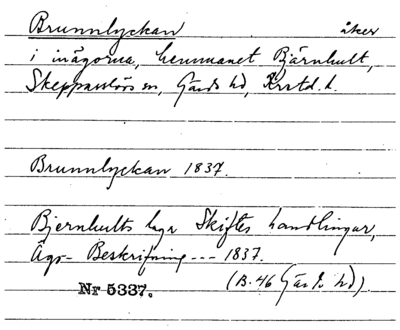 Brunnlyckan åker
i inägorna, hemmanet Bjärnhult,
Skepparslövs sn, Gärds hd, Krstd. l.
Brunnlyckan 1837.
Bjernhults laga Skiftes handlingar,
Ägo- Beskrifning --- 1837.
Nr 5337. (B. 46 Gärds hd).